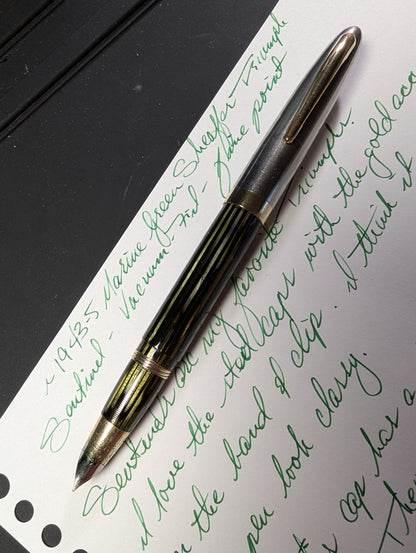 ~ 1943S Marine Green Sheaffer Triumph
Sentinel - Vacuum-Fil - fine point
Sentinels are my favorite Triumph.
I love the steel caps with the gold acc
the band & clip. I think it
pen look classy.
cap has a
The